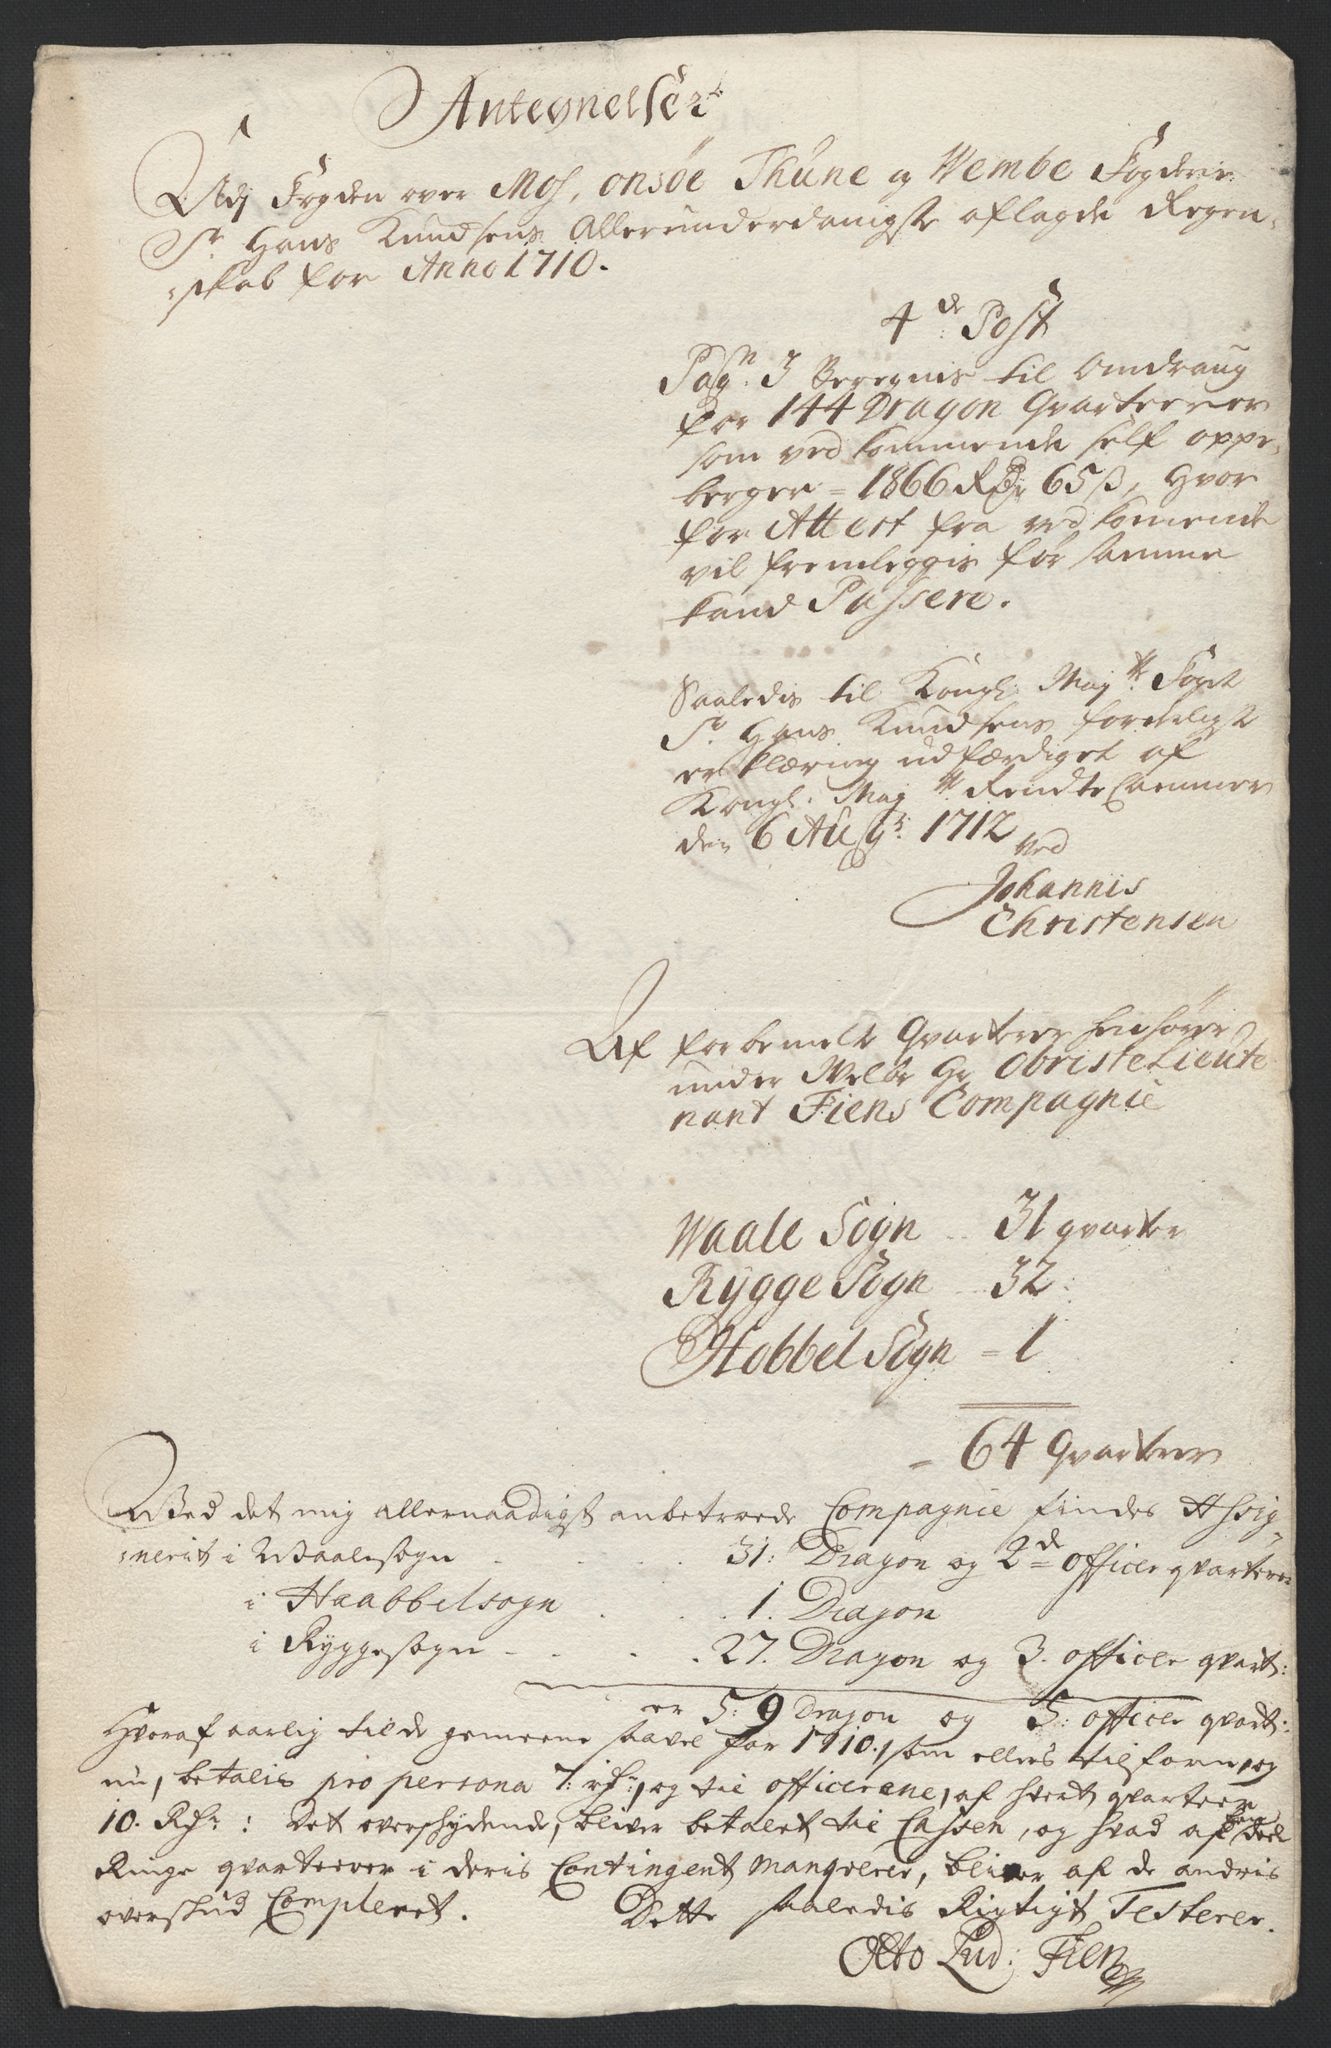 Antegnelser
Udj Fogden over Mos, onsöe Thune og Wembe Fogderie
Sr. Hans Knudsens Allerunderdanigste aflagde Regen-
-skab for Anno 1710.
4de Post
Pagn. 3 Beregnis til Omdraug
for 144 Dragon Qvarterer
som ved kommende self oppe-
berger = 1866 Rdr 65 ß, hvor
for Attest fra ved komende
vil fremleggis før samme
kand Passere.
Saaledis til Kongl. Mayts. Foget
Sr. Hans Knudsens forderligst
erklæring udfærdiget af
Kongl. Mayts Rendte Cammer
den 6 Aug: 1712
ved
Johannis
Christensen
Af forbemelte Qvarterer henhører
under Welbr Hr Obriste Lieute
nant Fiens Compagnie
Waale Sogn 31 qvarter
Rygge Sogn 32
Hobbel Sogn = 1
= 64 Qvarterer
Wed det mig allernaadigst anbetroede Compagnie findes Assig-
-nerit i Waalesogn . . . . 31: Dragon og 2de officer qvarterer
i Haabbelsogn . . . 1. Dragon
i Ryggesogn - . . . 27. Dragon og 3. officer qvart:
er 5:9 Dragon og 5: officer qvart:
Hvoraf aarlig til de gemeene saavel for 1710, som ellers tilforn, og
nu, betalis pro persona 7: rdr:, og til officerene, af hvert qvarteer
10. Rdr: : Det overskydende, bliver betalet til Cassen, og hvad af deel
Ringe qvarterer i deris Contingent manqverer, bliver af de andris
overskud Completet. Dette saaledis Rigtigt Testerer.
Otto Lud: Fien